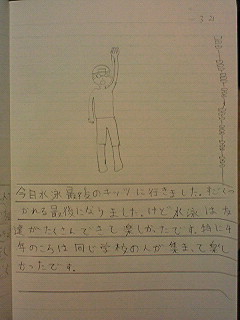 3 21
今日水泳最後のキップに行きました。すごくつ
かれる最後になりました。けど水泳は友
達がたくさんできて楽しかったです。特に4
年のころは同じ学校の人が集まって楽し
かったです。